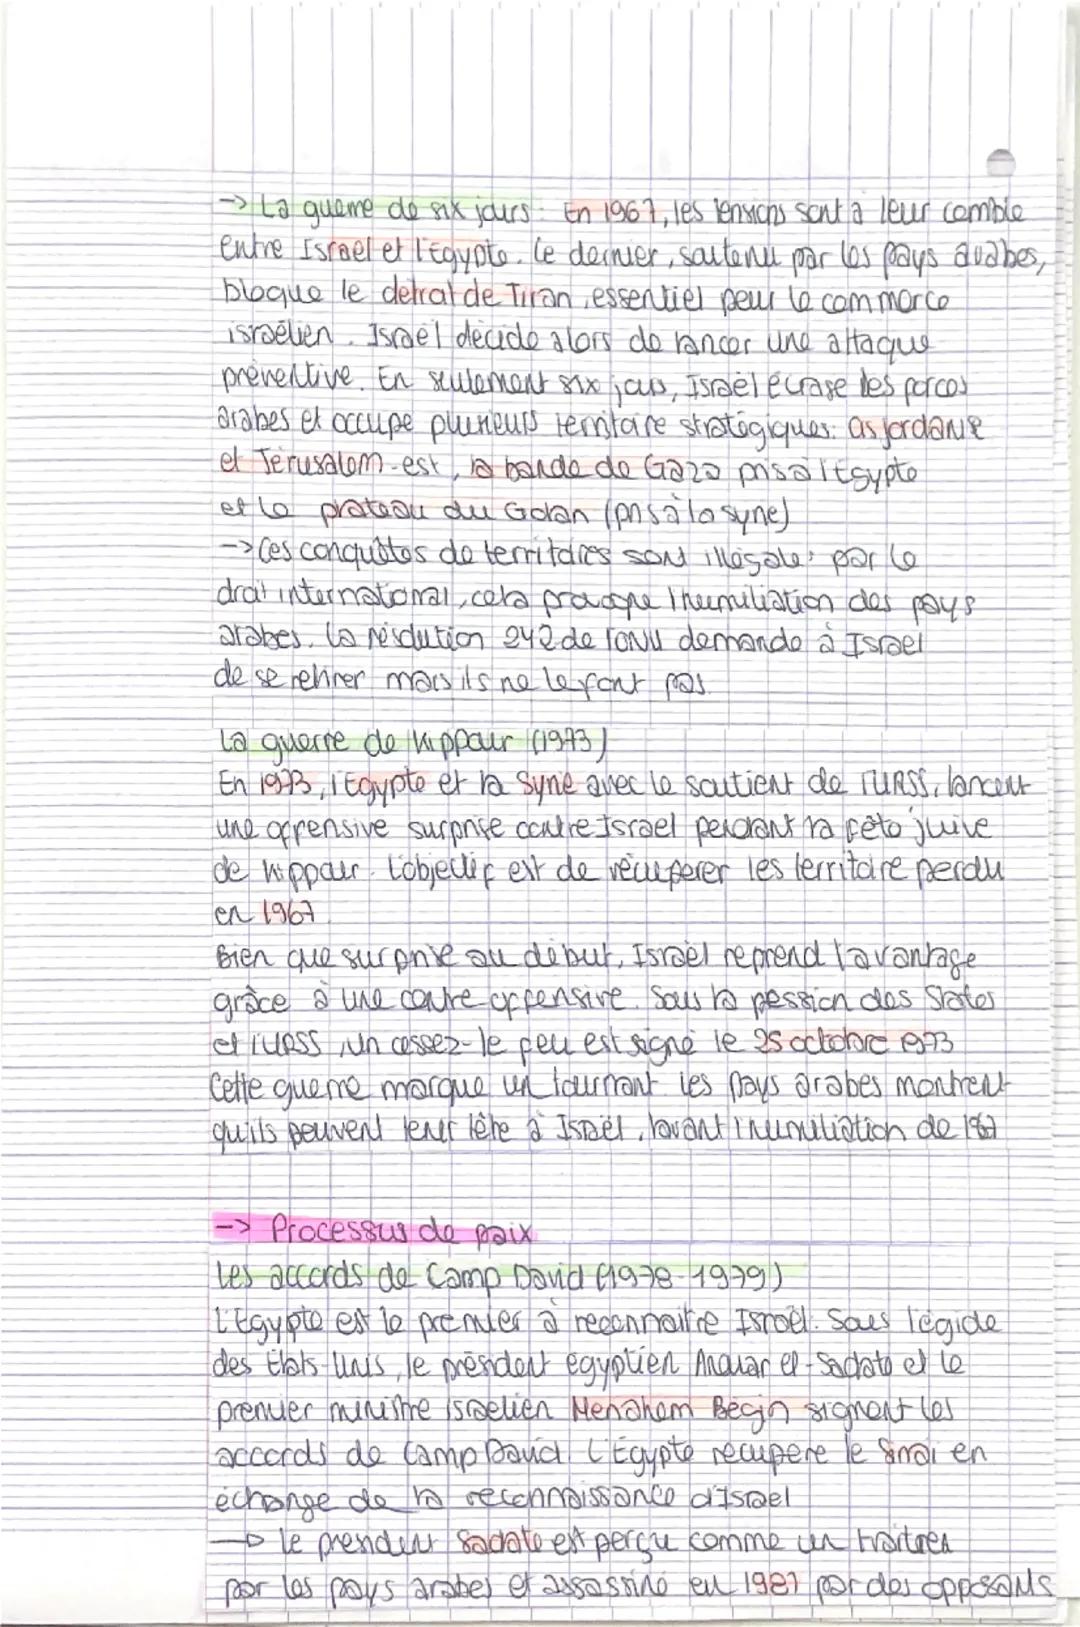 -> La guerre de six jours : En 1967, les tensions sont à leur comble
entre Israel et l'Egypte. Ce dernier, soutenu par les pays arabes,
bloque le detrat de Tiran, essentiel pour le commerce
israélien. Israël décide alors de lancer une attaque
préventive. En seulement six jours, Israël écrase les forces
arabes et occupe plusieurs territoire stratégiques: cisjordanie
et Jérusalem-est, la bande de Gaza pris à l'Egypte
et le plateau du Golan (pris à la syrie)
-> Ces conquêtes de territoires sont illégales par le
droit international, cela provoque l'humiliation des pays
arabes. La résolution 242 de l'ONU demande à Israel
de se retirer mais ils ne le font pas
La guerre de Kippour (1973)
En 1973, l'Egypte et la Syrie avec le soutient de l'URSS, lancent
une offensive surprise contre Israel pendant la fête juive
de kippour. L'objectif est de récupérer les territoire perdu
en 1967.
Bien que surprise au début, Israël reprend l'avantage
grâce à une contre offensive. Sous la pession des States
et l'URSS, un cessez-le feu est signé le 25 octobre 1973
Cette guerre marque un tournant les pays arabes montrent
qu'ils peuvent tenir tête à Israël, lavant l'humiliation de 1967
-> Processus de paix
Les accords de Camp David (1978-1979)
L'Egypte est le premier à reconnaitre Israël. Sous l'égide
des Etats-Unis, le président égyptien Anouar el-Sadate et le
premier ministre israelien Menahem Begin signent les
accords de Camp David. L'Egypte récupère le Sinaï en
échange de la reconnaissance d'Israel
-> le président Sadate est perçu comme un traitres
par les pays arabes et assassiné en 1981 par des opposants